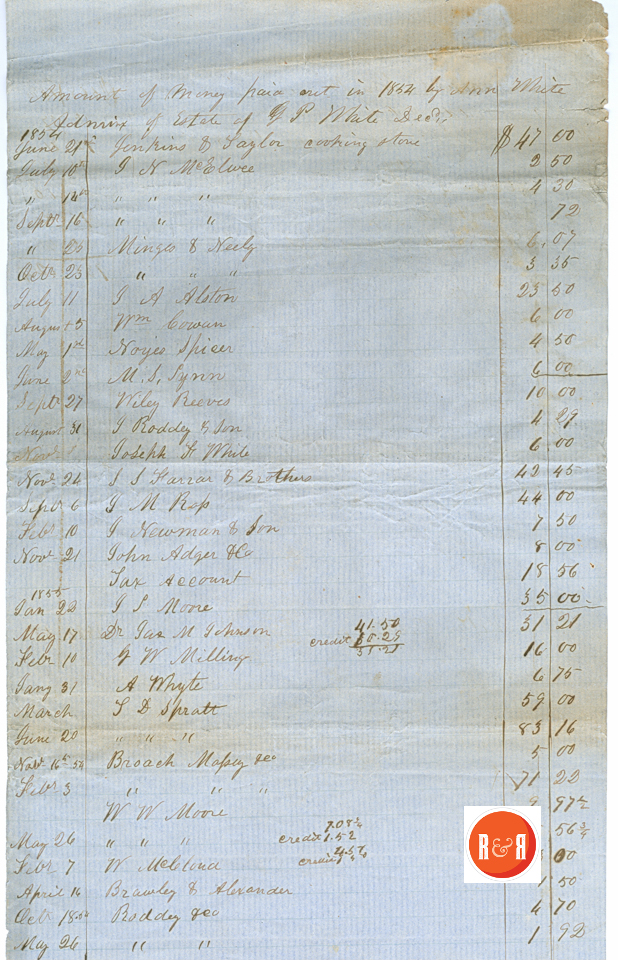 Amount of Money paid out in 1854 by Ann White
Admrix of Estate of G P White Decd;
1854
June 21st Jenkins & Taylor cooking stove $47 00
July 10th J N McElwee 2 50
" 14th " " " 4 30
Septr 16 " " " 72
" 23 Minges & Neely 6.07
Octbr 23 " " " 3 35
July 11 J A Alston 23 50
August 5 Wm Cowan 6 00
May 1st Noyes Spicer 4 50
June 2nd M. S. Lynn 6 00
Septr 27 Wiley Reeves 10 00
August 31 J Roddey & Son 4 29
Novr 1 Joseph F White 6 00
Novr 24 S S Farrar & Brothers 42 45
Septr 6 J M Ross 44 00
Febr 10 J Newman & Son 7 50
Novr 21 John Adger & Co 8 00
Tax Account 18 56
1855
Jan 22 J S Moore 35 00
May 17 Dr Jas M Johnson 41.50 31 21
credit 10.29
31.21
Febr 10 G W Milling 16 00
Jany 31 A Whyte 6 75
March T D Spratt 59 00
June 20 " " " 83 16
Novr 16th 54 Broach Massey & co 5 00
Febr 3 " " " 71 22
W W Moore 97½
7.08¼
May 26 " " " credit 1.52 56¾
Febr 7 W McCleland credit 00
April 14 Brawley & Alexander 1 50
Octbr 1854 Roddey & co 4 70
May 26 " " 1 92
R&R